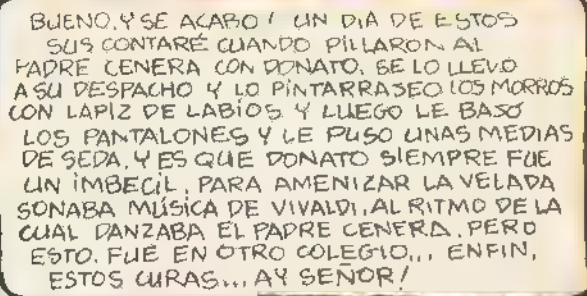 BUENO, Y SE ACABO! UN DIA DE ESTOS
SUS CONTARÉ CUANDO PILLARON AL
PADRE CENERA CON DONATO. SE LO LLEVO
A SU DESPACHO Y LO PINTARRASEO LOS MORROS
CON LAPIZ DE LABIOS. Y LUEGO LE BAJO
LOS PANTALONES Y LE PUSO UNAS MEDIAS
DE SEDA. Y ES QUE DONATO SIEMPRE FUE
UN IMBECIL. PARA AMENIZAR LA VELADA
SONABA MÚSICA DE VIVALDI, AL RITMO DE LA
CUAL DANZABA EL PADRE CENERA. PERO
ESTO, FUE EN OTRO COLEGIO... ENFIN,
ESTOS CURAS... AY SEÑOR!